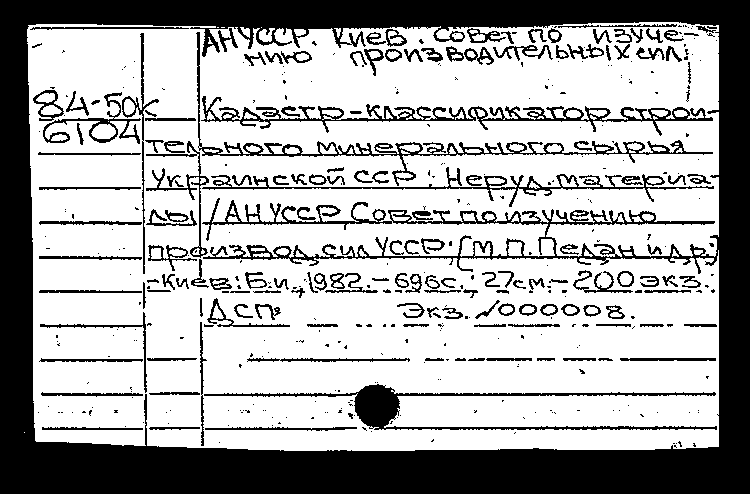 АН УССР. Киев. Совет по изуче-
нию производительных сил.
84-50к
6104
Кадастр-классификатор строи-
тельного минерального сырья
Украинской ССР: Неруд. материа-
лы / АН УССР, Совет по изучению
производ. сил УССР; [М.П. Педан и др.]
-Киев: Б.и., 1982. - 696с.; 27см. - 200 экз.
ДСП Экз. №000008.